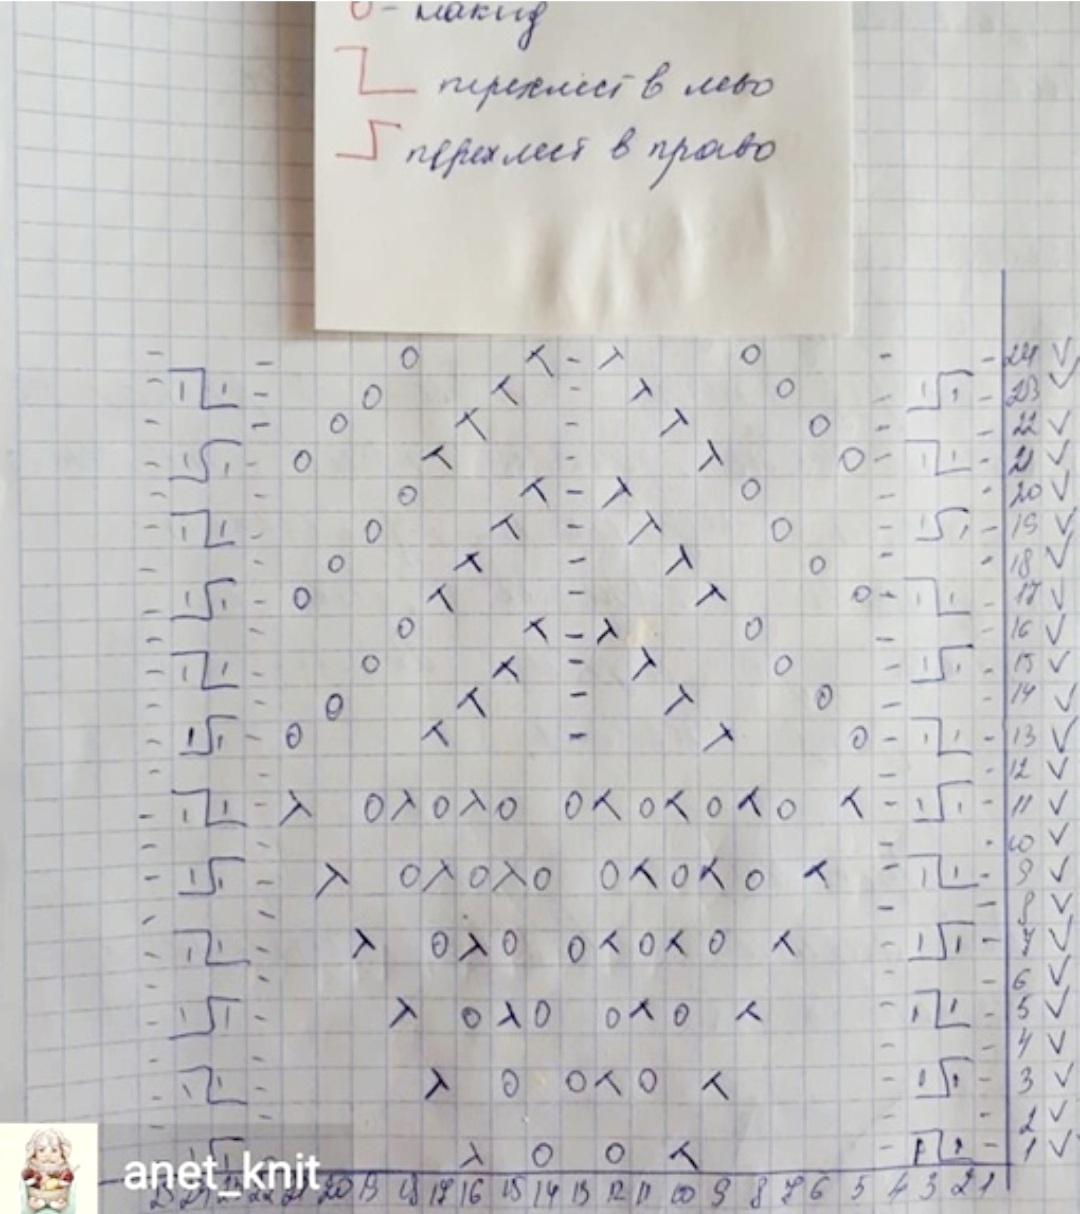 О - накид
перехлест в лево
перехлест в право
24
23
22
21
20
19
18
17
16
15
14
13
12
11
10
9
8
7
6
5
4
3
2
1
anet_knit
25 24 23 22 21 20 19 18 17 16 15 14 13 12 11 10 9 8 7 6 5 4 3 2 1